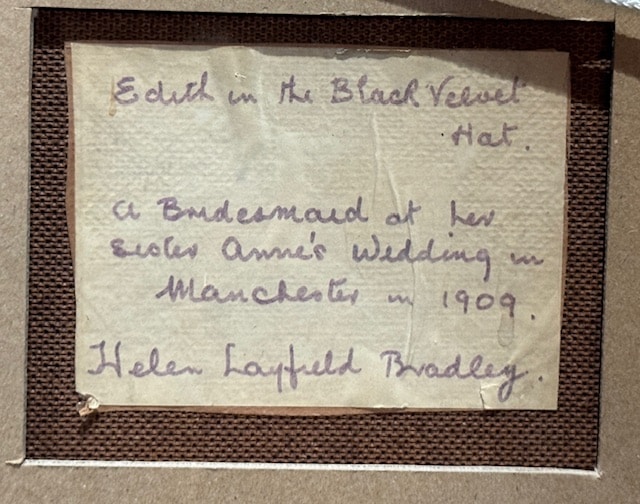 Edith in the Black Velvet
Hat.
A Bridesmaid at her
Sister Anne's Wedding in
Manchester in 1909.
Helen Layfield Bradley.